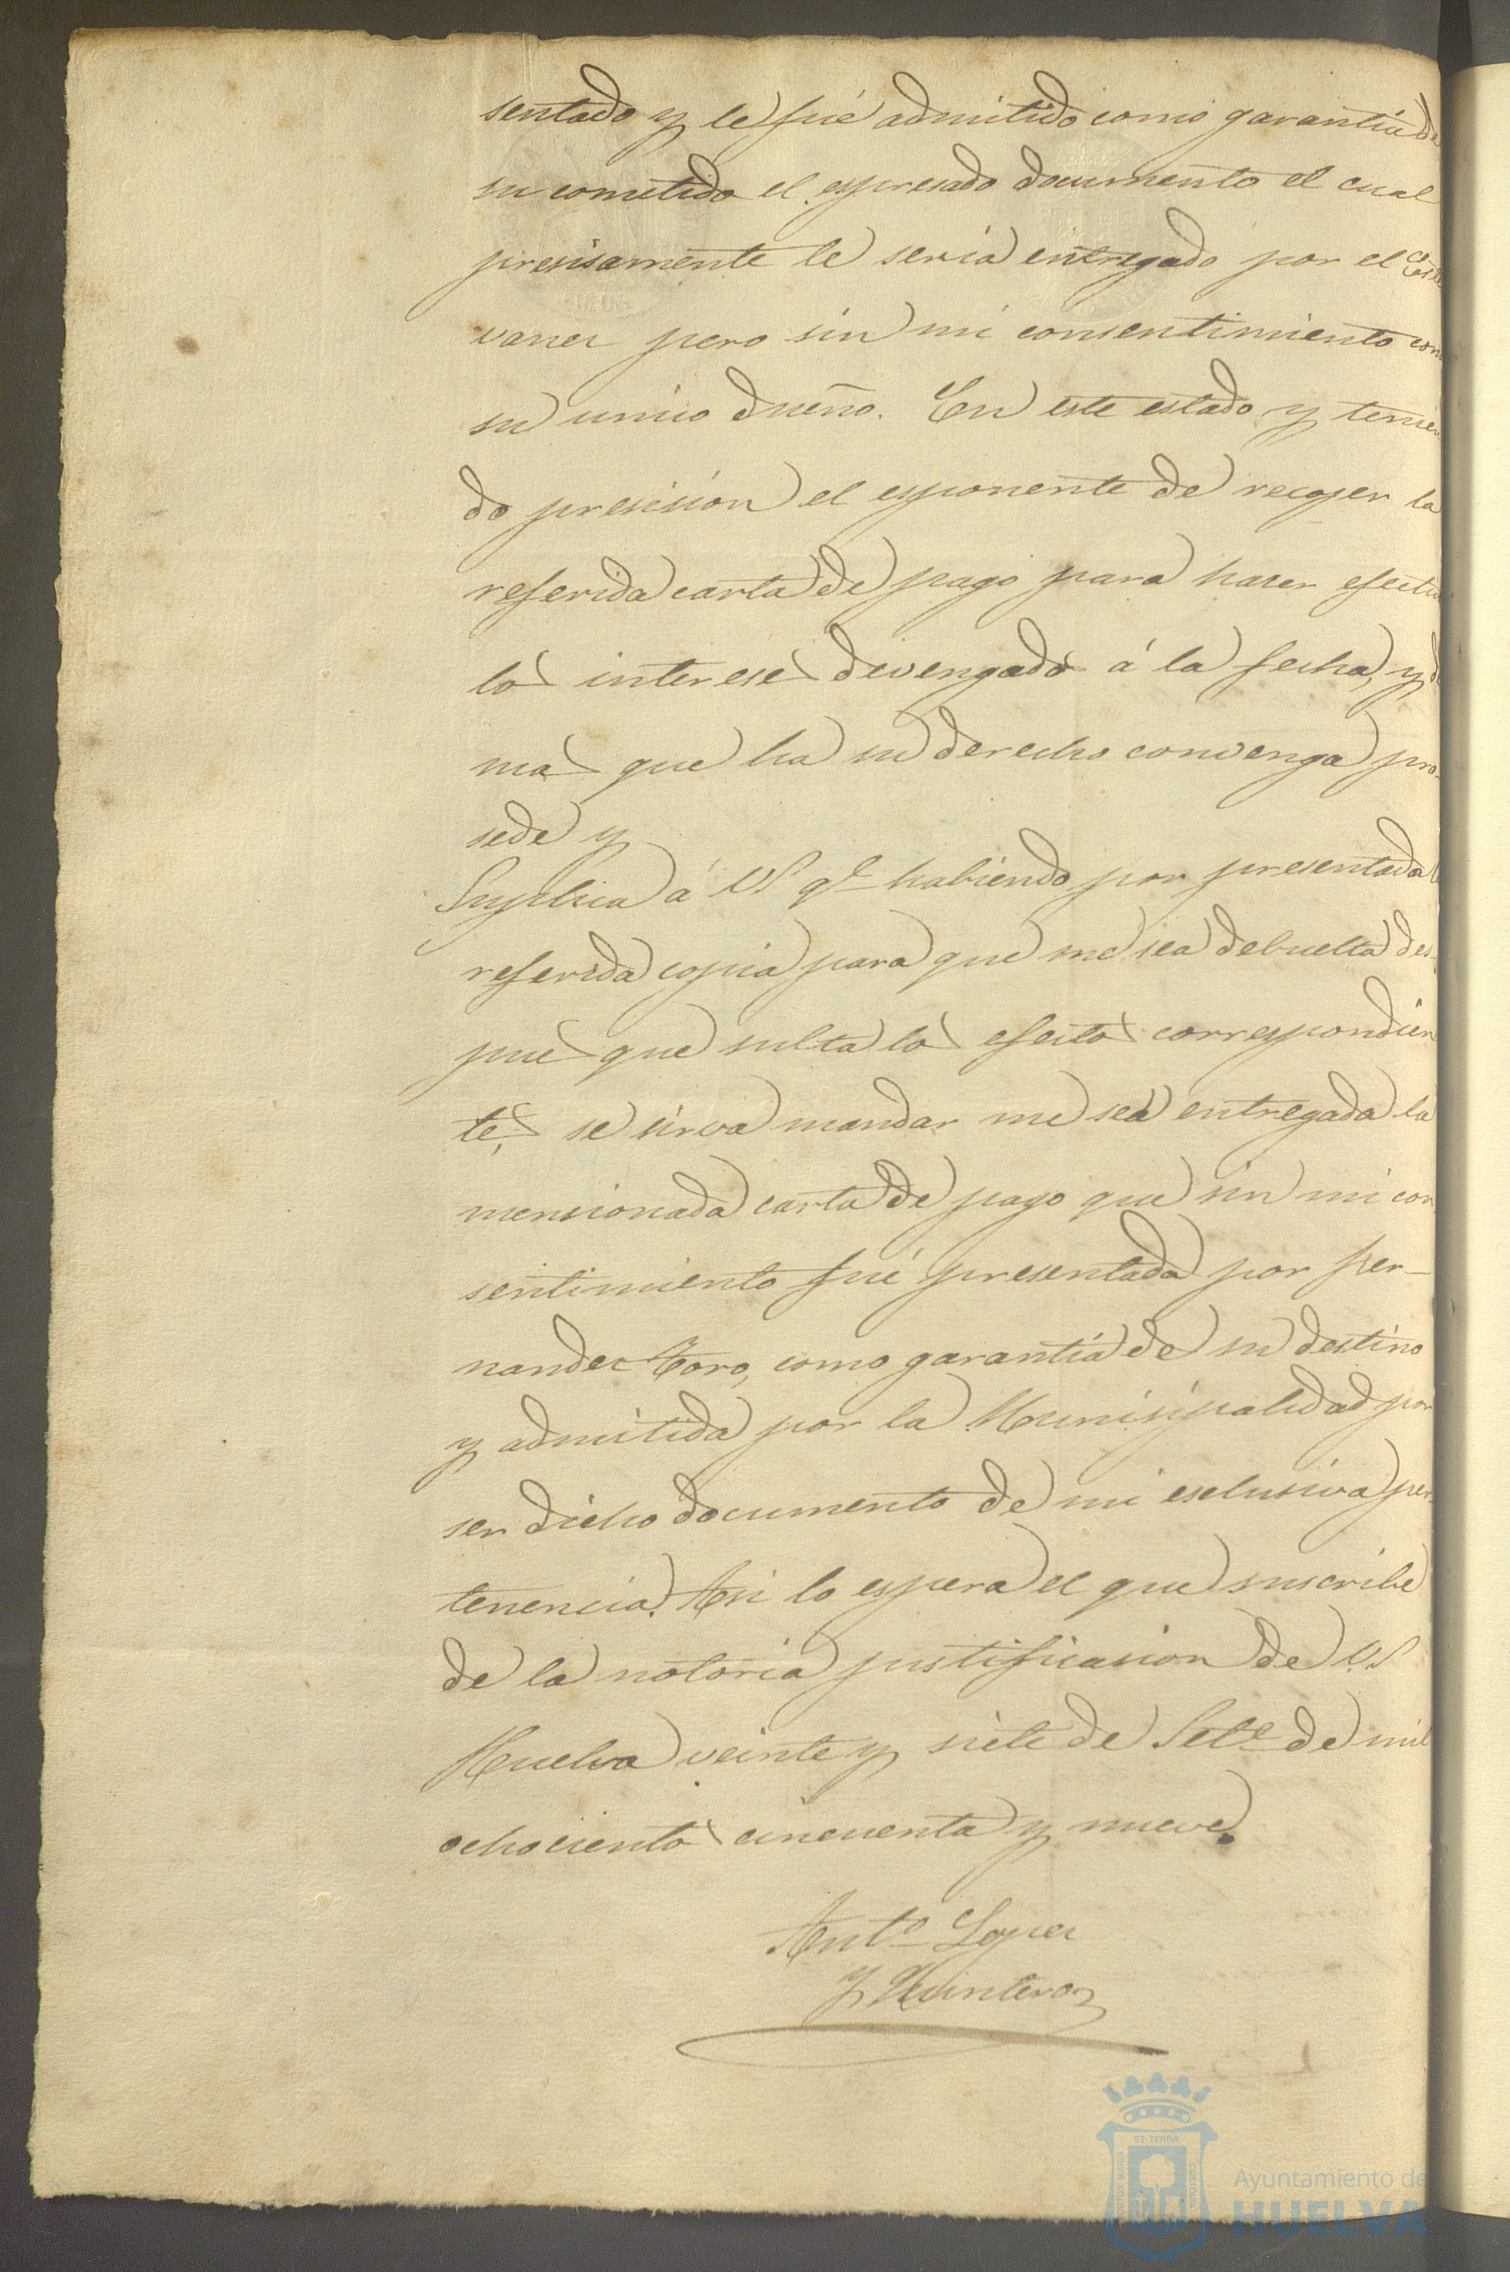 sentado y le fué admitido como garantia de
su cometido el espresado documento el cual
presisamente le seria entregado por el
vanes pero sin mi consentimiento com
su unico dueño. En este estado y tenien
do presision el esponente de recojer la
referida carta de pago para haser efectiv
los intereses devengados á la fecha, y d
mas que ha su derecho convenga pro-
sede y
Suplica á VS qe habiendo por presentada
referida copia para que me sea debuelta des-
pues que sulta los efectos correspondien
tes, se sirva mandar me sea entregada la
mensionada carta de pago que sin mi con
sentimiento fué presentada por Fer-
nandes Toro, como garantia de su destino
y admitida por la Munisipalidad por
ser dicho documento de mi esclusiva per-
tenencia. Asi lo espera el que suscribe
de la notoria justificasion de VS
Huelva veinte y siete de Sete de mil
ochocientos cincuenta y nueve.
Anto Lopes
y Quintero
ET TERRÆ
PORTUS MARIS
CUSTODIA
Ayuntamiento de
HUELVA